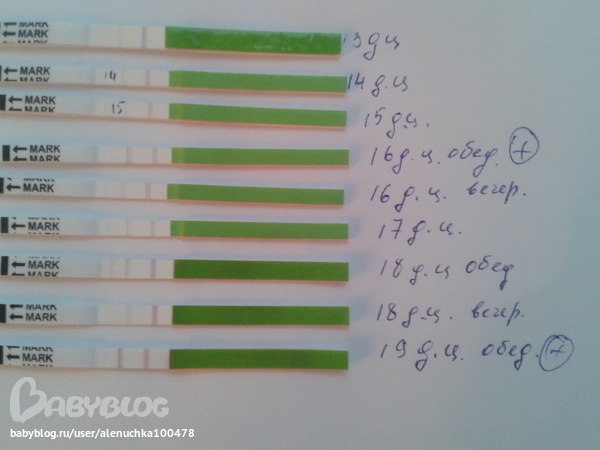 MARK
MARK 13 д.ц
MARK
MARK 14 14 д.ц
MARK
MARK 15 15 д.ц.
MARK
MARK 16 д.ц. обед. +
MARK
MARK 16 д.ц. вечер.
MARK
MARK 17 д.ц.
MARK
MARK 18 д.ц обед
MARK
MARK 18 д.ц. вечер.
MARK
MARK 19 д.ц. обед. +
BABYBLOG
babyblog.ru/user/alenuchka100478